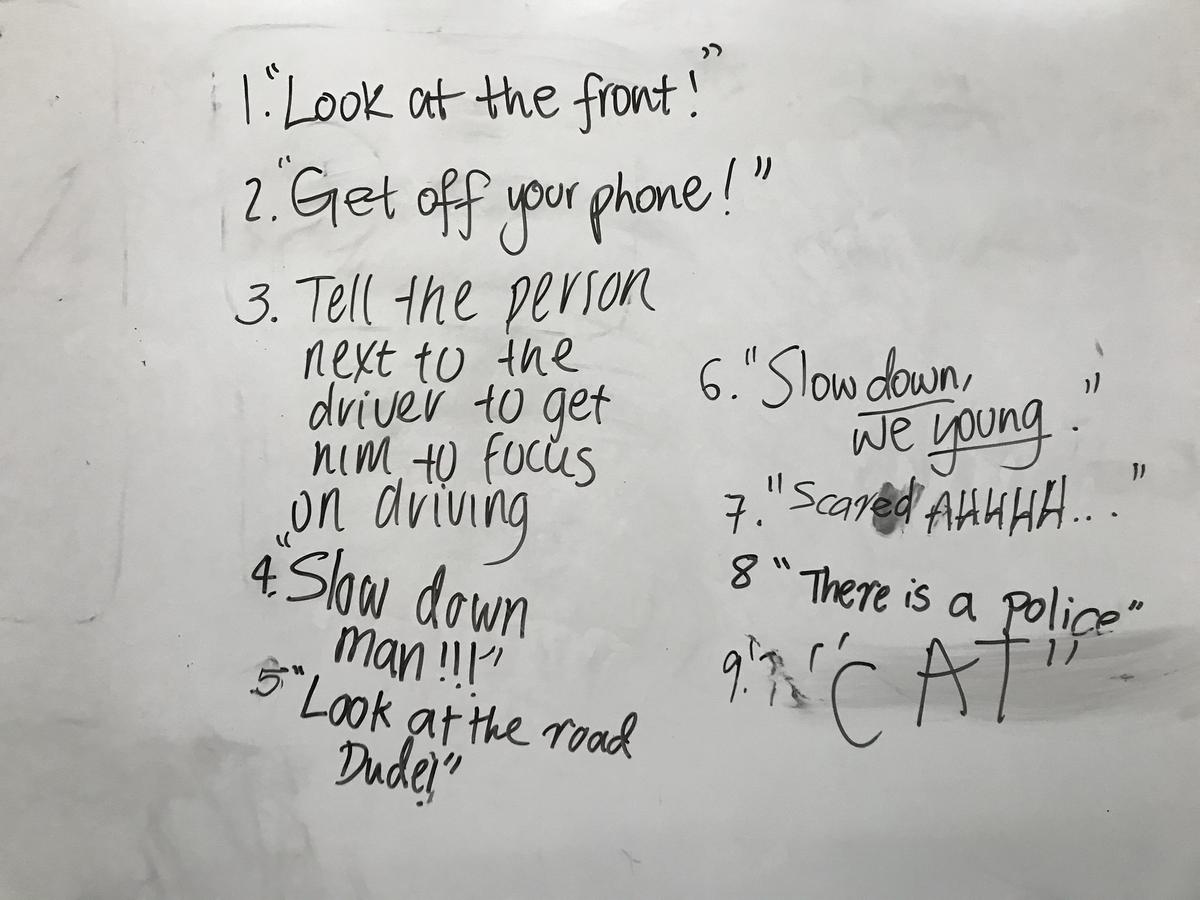 1. "Look at the front!"
2. "Get off your phone!"
3. Tell the person
next to the
driver to get
him to focus
on driving
4. "Slow down
man!!!"
5 "Look at the road
Dude!"
6. "Slow down,
we young."
7. "Scared AHHHH..."
8 "There is a police"
9. "CAT"